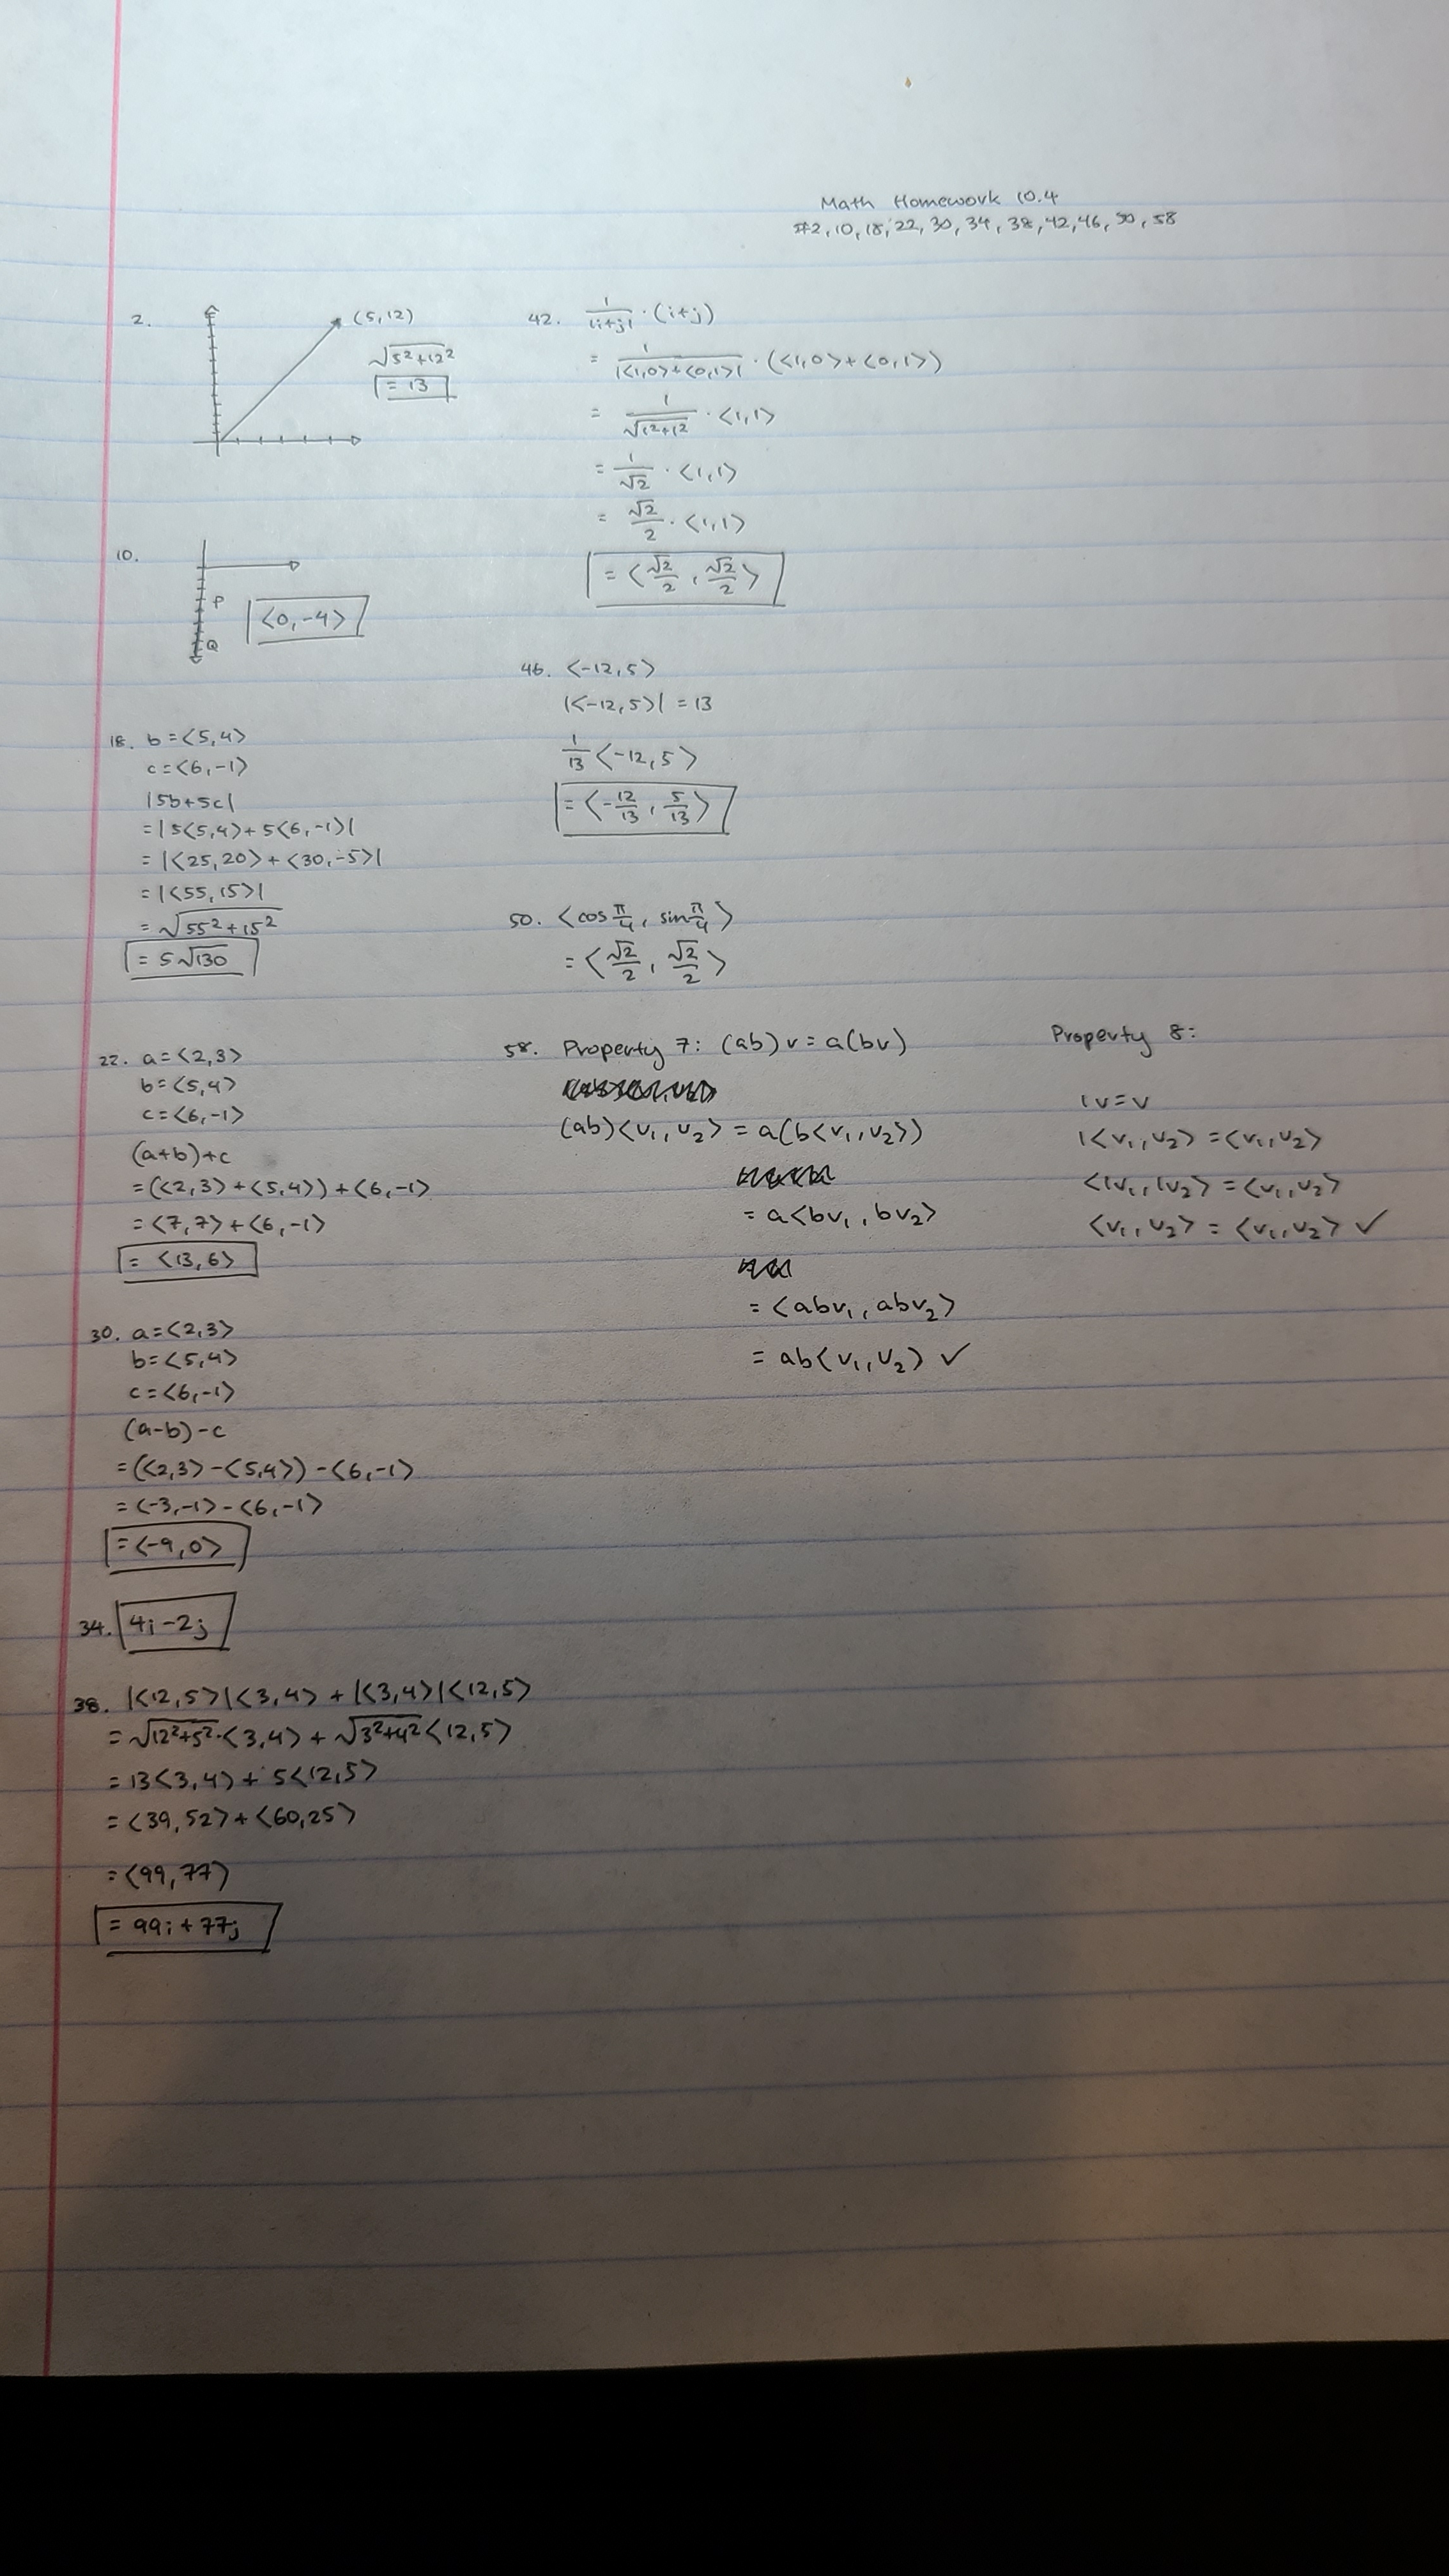 Math Homework 10.4
#2, 10, 18, 22, 30, 34, 38, 42, 46, 50, 58
2.
(5,12)
√(5²+12²)
= 13
10.
P
Q
<0,-4>
18. b=<5,4>
c=<6,-1>
|5b+5c|
=|5<5,4>+5<6,-1>|
=|<25,20>+<30,-5>|
=|<55,15>|
=√(55²+15²)
=5√130
22. a=<2,3>
b=<5,4>
c=<6,-1>
(a+b)+c
=(<2,3>+<5,4>)+<6,-1>
=<7,7>+<6,-1>
= <13,6>
30. a=<2,3>
b=<5,4>
c=<6,-1>
(a-b)-c
=(<2,3>-<5,4>)-<6,-1>
=<-3,-1>-<6,-1>
=<-9,0>
34. 4i-2j
38. |<12,5>|<3,4>+|<3,4>|<12,5>
=√(12²+5²)·<3,4>+√(3²+4²)<12,5>
=13<3,4>+5<12,5>
=<39,52>+<60,25>
=<99,77>
= 99i+77j
42. 1/|i+j| · (i+j)
= 1/|<1,0>+<0,1>| · (<1,0>+<0,1>)
= 1/√(1²+1²) · <1,1>
= 1/√2 · <1,1>
= √2/2 · <1,1>
= <√2/2, √2/2>
46. <-12,5>
|<-12,5>| = 13
1/13 <-12,5>
= <-12/13, 5/13>
50. <cos π/4, sin π/4>
= <√2/2, √2/2>
58. Property 7: (ab)v=a(bv)
(ab)<v₁,v₂> = a(b<v₁,v₂>)
= a<bv₁,bv₂>
= <abv₁,abv₂>
= ab<v₁,v₂> ✓
Property 8:
1v=v
1<v₁,v₂>=<v₁,v₂>
<1v₁,1v₂>=<v₁,v₂>
<v₁,v₂>=<v₁,v₂> ✓